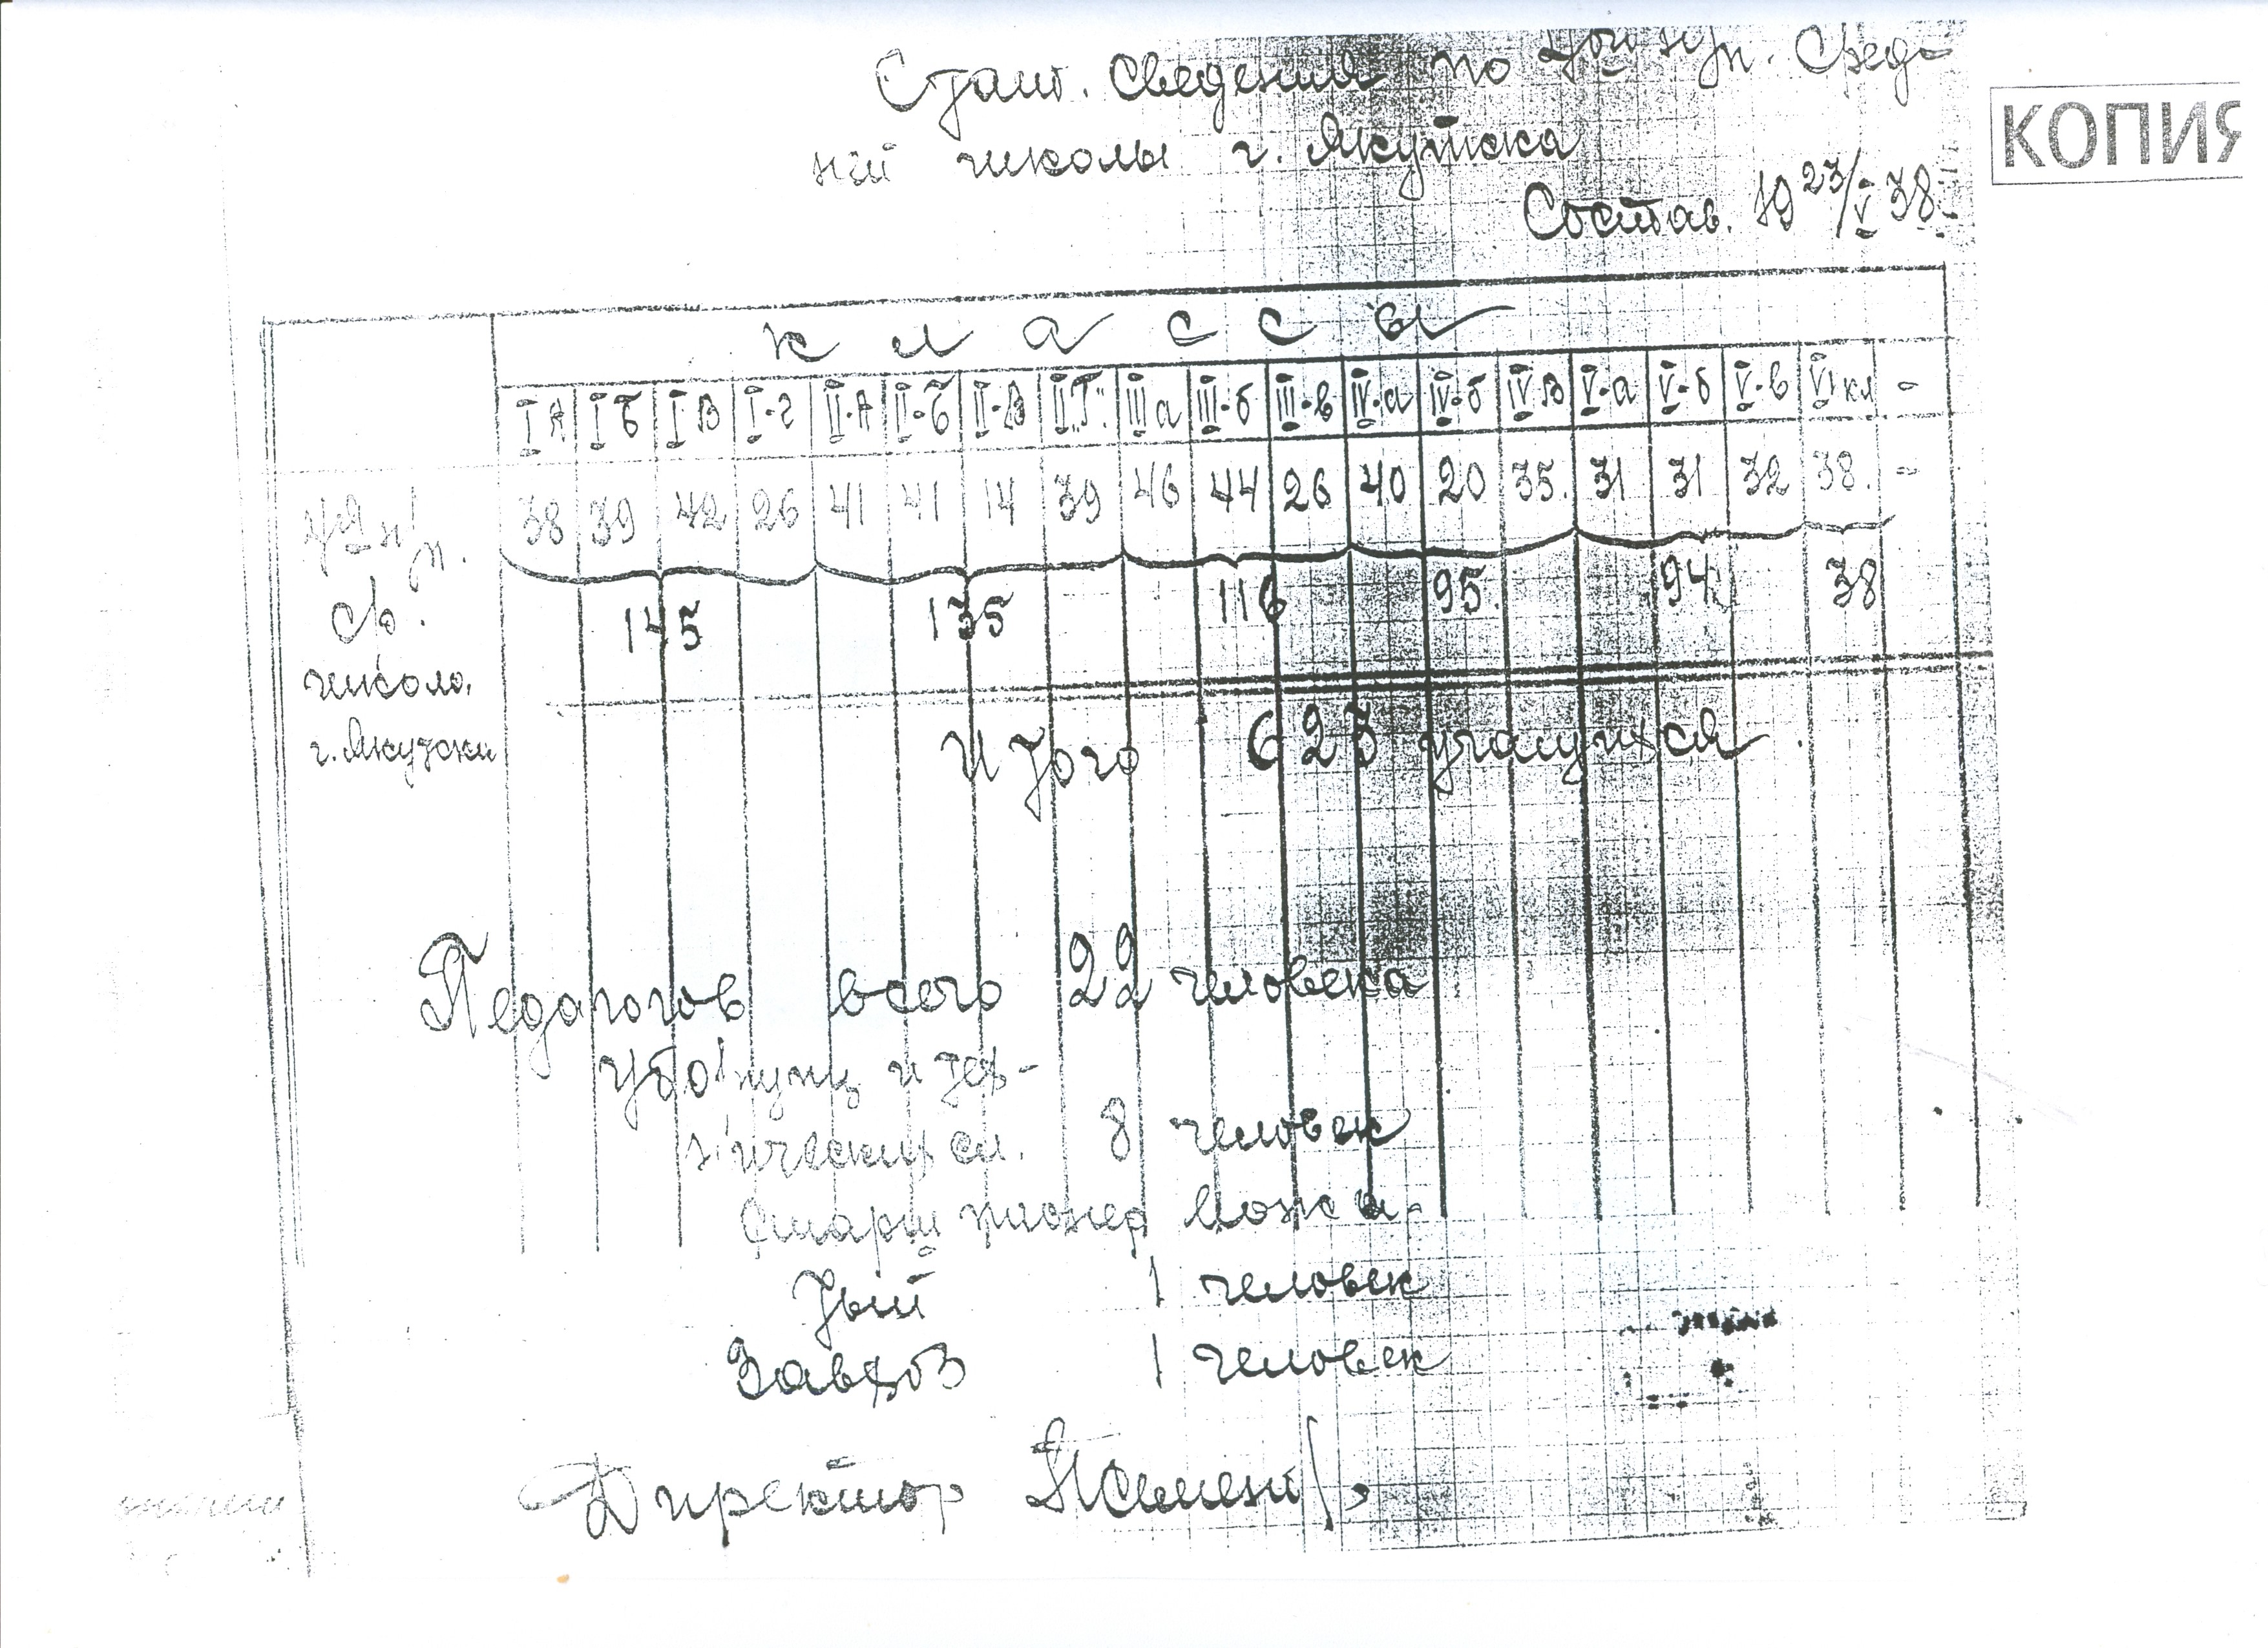 Стат. сведения по сред-
ней школы г. Якутска
КОПИЯ
Состав. 19 23/V 38
классы
I А I Б I В I-г II-А II-Б II-В II„Г" III а III-б III-в IV-а IV-б IV В V-а V-б V-в VI кл -
38 39 42 26 41 41 14 39 46 44 26 40 20 35. 31 31 32 38. -
ср.
школа.
г. Якутски
145 135 116 95. 94 38
Итого 623 учащихся.
Педагогов всего 22 человека
и тех-
нических сл. 8 человек
старш пионер вожа-
тый 1 человек
Завхоз 1 человек
Директор